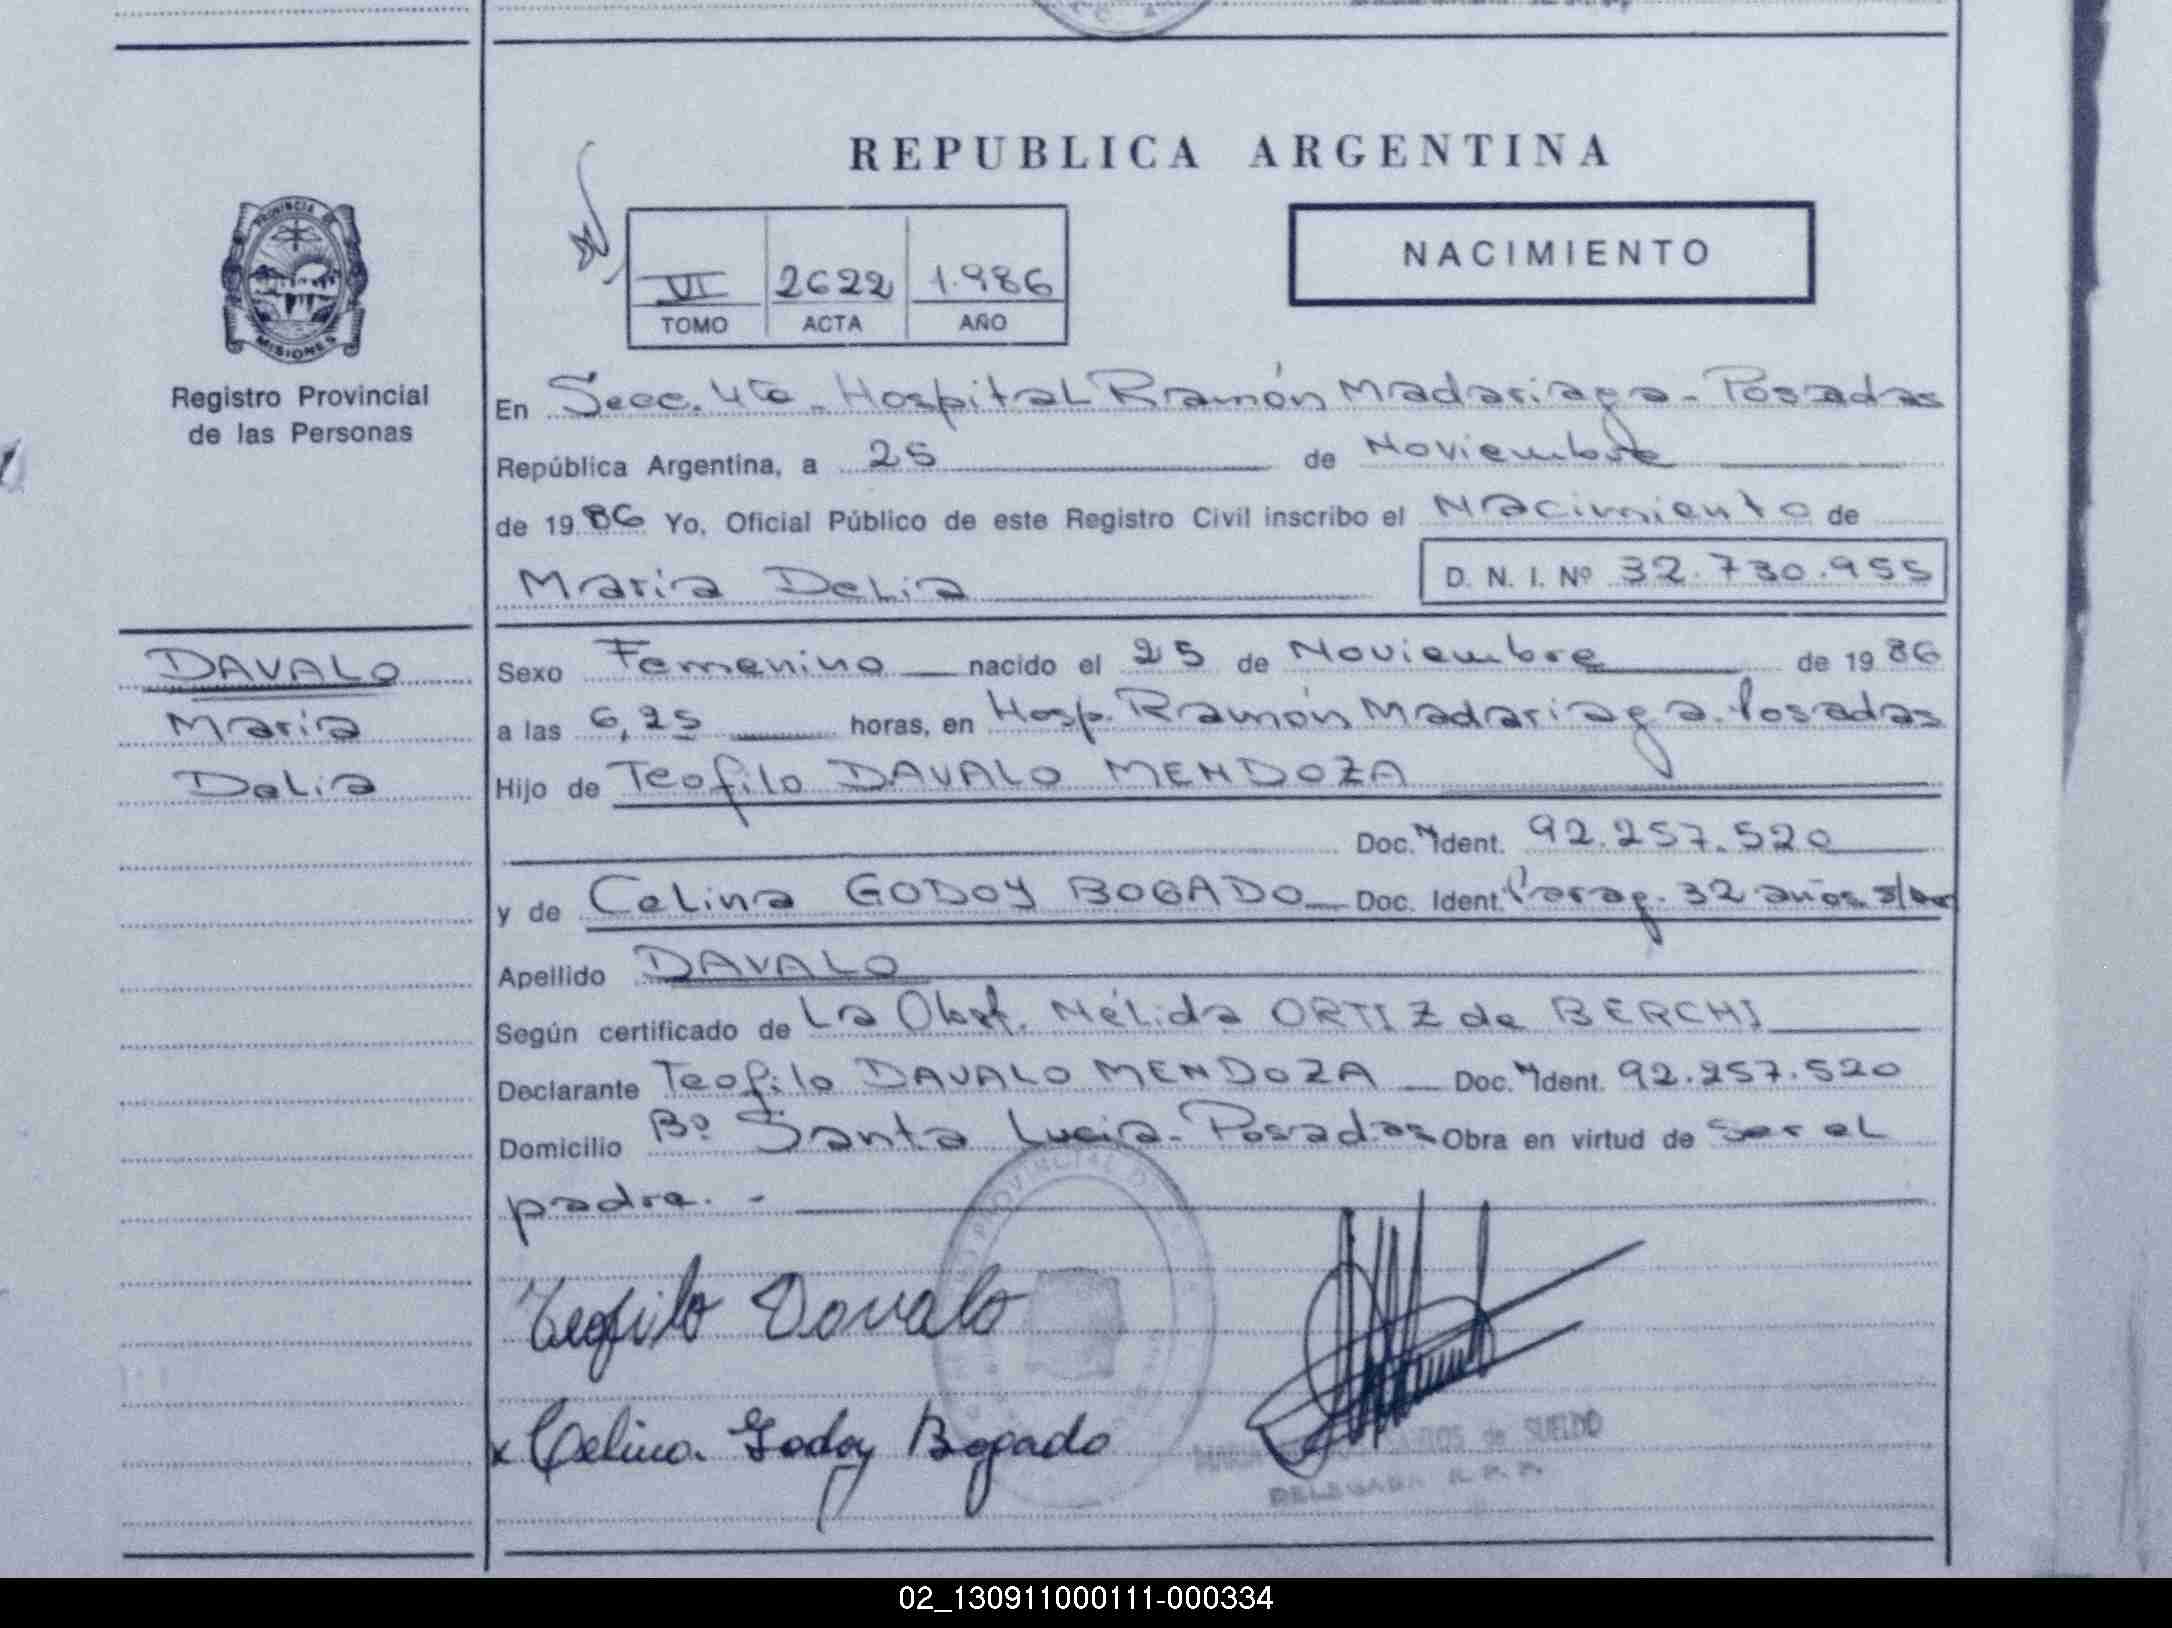 REPUBLICA ARGENTINA
PROVINCIA DE
MISIONES
Registro Provincial
de las Personas
NACIMIENTO
VI 2622 1.986
TOMO ACTA AÑO
En Secc. 4ta. Hospital Ramón Madariaga - Posadas
República Argentina, a 25 de Noviembre
de 1986 Yo, Oficial Público de este Registro Civil inscribo el Nacimiento de
María Delia D. N. I. Nº 32.730.955
DAVALO
María
Delia
Sexo Femenino nacido el 25 de Noviembre de 1986
a las 6,25 horas, en Hosp. Ramón Madariaga. Posadas
Hijo de Teofilo DAVALO MENDOZA
Doc. Ident. 92.257.520
y de Celina GODOY BOGADO Doc. Ident. Parag. 32 años
Apellido DAVALO
Según certificado de La Obst. Nélida ORTIZ de BERCHI
Declarante Teofilo DAVALO MENDOZA Doc. Ident. 92.257.520
Domicilio Bº Santa Lucia - Posadas Obra en virtud de ser el
padre. -
Teofilo Davalo
x Celina Godoy Bogado
de SUELDO
DELEGADA R. P. P.
02_130911000111-000334